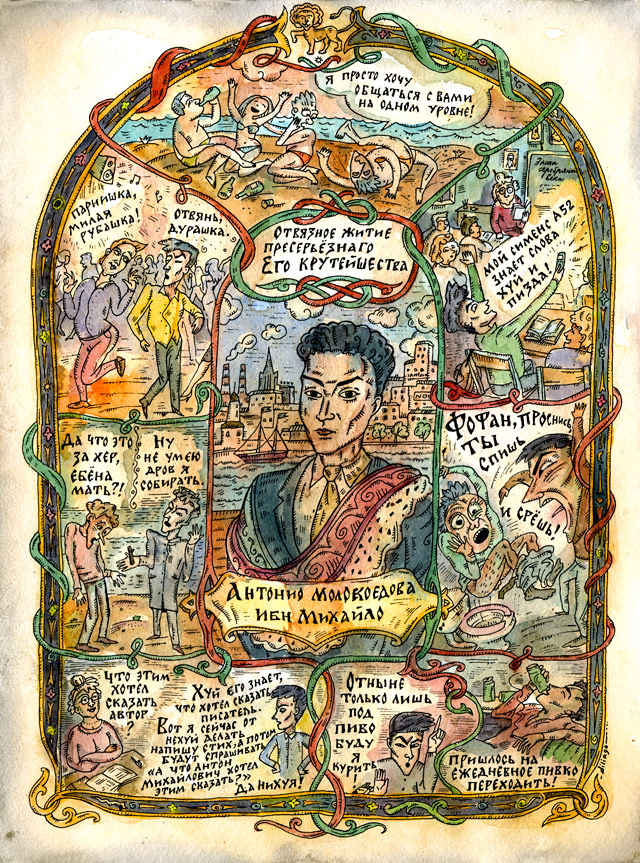 Я просто хочу
общаться с вами
на одном уровне!
Парнишка,
милая
рубашка!
Отвянь,
дурашка.
Отвязное житие
пресерьёзнаго
Его Крутейшества
Эпоха
серебряного
века
Мой сименс А52
знает слова
хуй и
пизда!
Да что это
за хер,
ебёна
мать?!
Ну
не умею
дров я
собирать.
Фофан, проснись,
ты
спишь
и срёшь!
Антонио Молокоедова
ибн Михайло
Что этим
хотел
сказать
автор
?
Хуй его знает,
что хотел сказать
писатель.
Вот я сейчас от
нехуй делать
напишу стих, а потом
будут спрашивать
«А что Антон
Михайлович хотел
этим сказать?»
Да нихуя!
Отныне
только лишь
под
пиво
буду
я
курить
Пришлось на
ежедневное пивко
переходить!